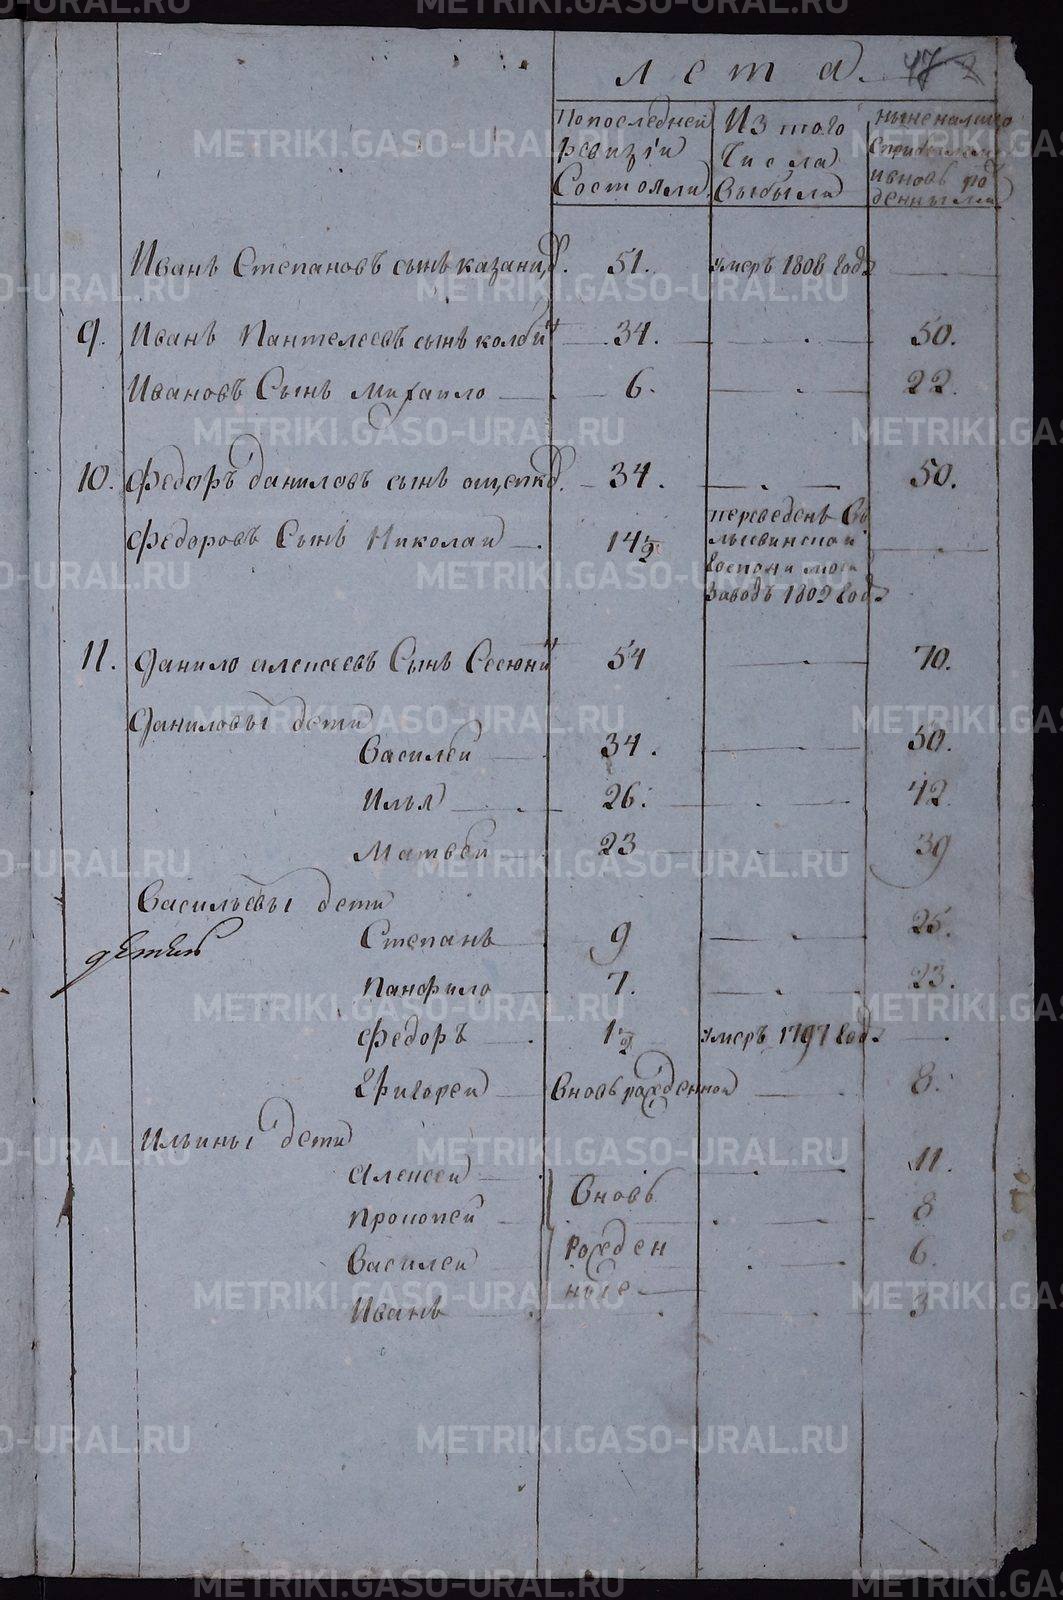 METRIKI.GASO-URAL.RU
лета. 47
По последней
ревизiи
Состояли
Из того
Числа
Выбыли
Ныне налицо
с прибылыми
и вновь рож
денными
Иванъ Степановъ сынъ казани, 51. умеръ 1808 года
9. Иванъ Пантелеевъ сынъ 34. 50.
Ивановъ Сынъ Михаило 6. 22.
10. Федоръ Даниловъ сынъ ощепко 34. 50.
Федоровъ Сынъ Николаи 14 1/2 переведенъ
господина моего
заводъ 1802 года
11. Данило Алексеевъ Сынъ Сесюни 54 70.
Даниловы дети
Василеи 34. 50.
Илья 26. 42
Матвеи 23 39
Васильевы дети
Степанъ 9 25.
Панфило 7. 23.
Федоръ 1/2 умеръ 1797 года
Григореи Вновь рожденнои 8.
Ильины дети
Алексеи 11.
Прокопеи 8
Василеи 6.
Иванъ 3
Вновь
Рожден
ные